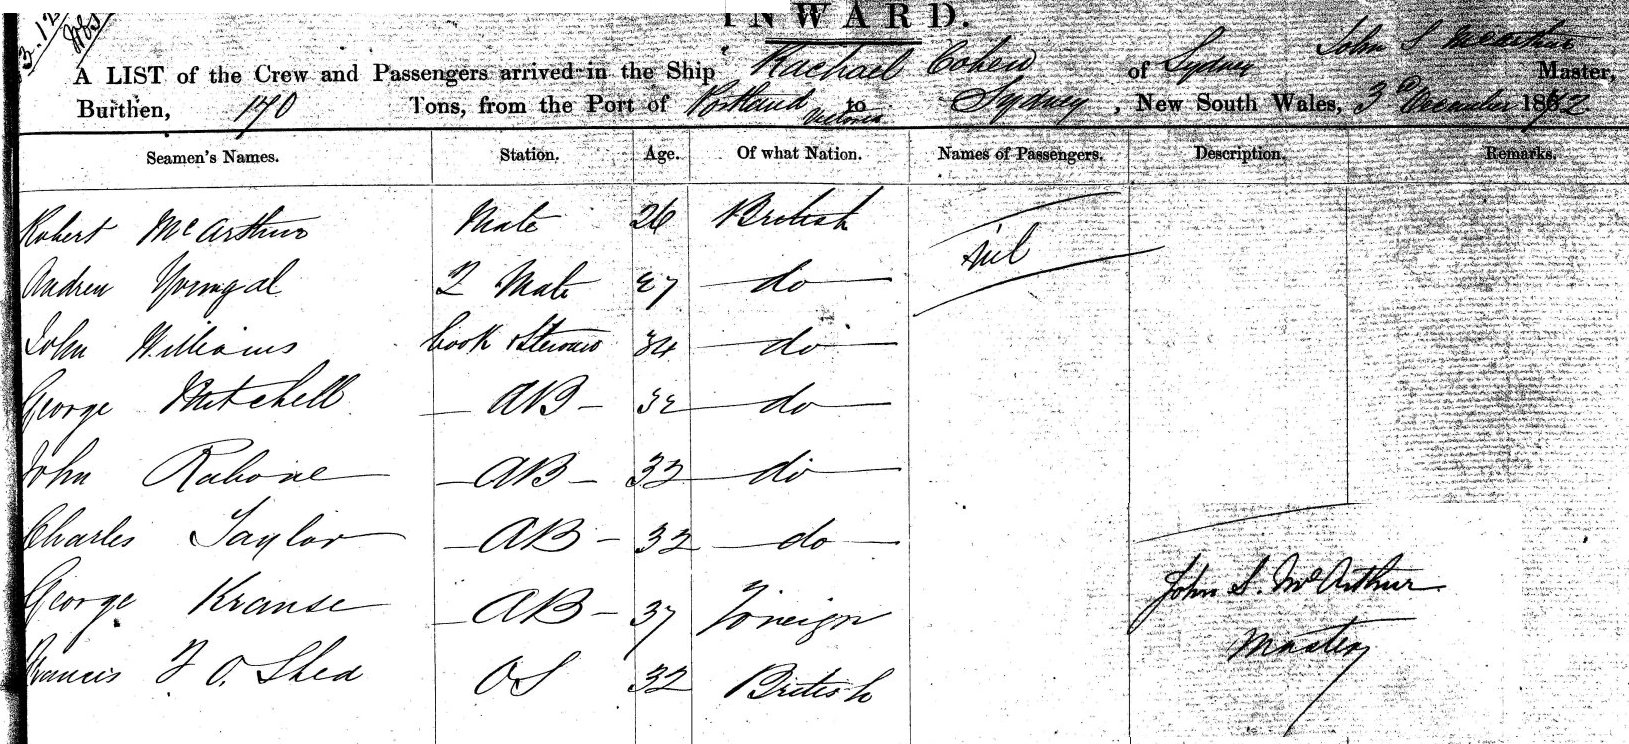 3.12
INWARD.
A LIST of the Crew and Passengers arrived in the Ship Rachael Cohen of Sydney John S McArthur Master,
Burthen, 170 Tons, from the Port of Portland Victoria to Sydney, New South Wales, 3d December 1872.
Seamen's Names. Station. Age. Of what Nation. Names of Passengers. Description. Remarks.
Robert McArthur Mate 26 British nil
Andrew Youngal 2 Mate 27 do
John Williams Cook & Steward 34 do
George Mitchell AB 32 do
John Rabone AB 33 do
Charles Taylor AB 32 do
George Krause AB 37 Foreign
Francis F O. Shea OS 32 British
John S. McArthur
Master